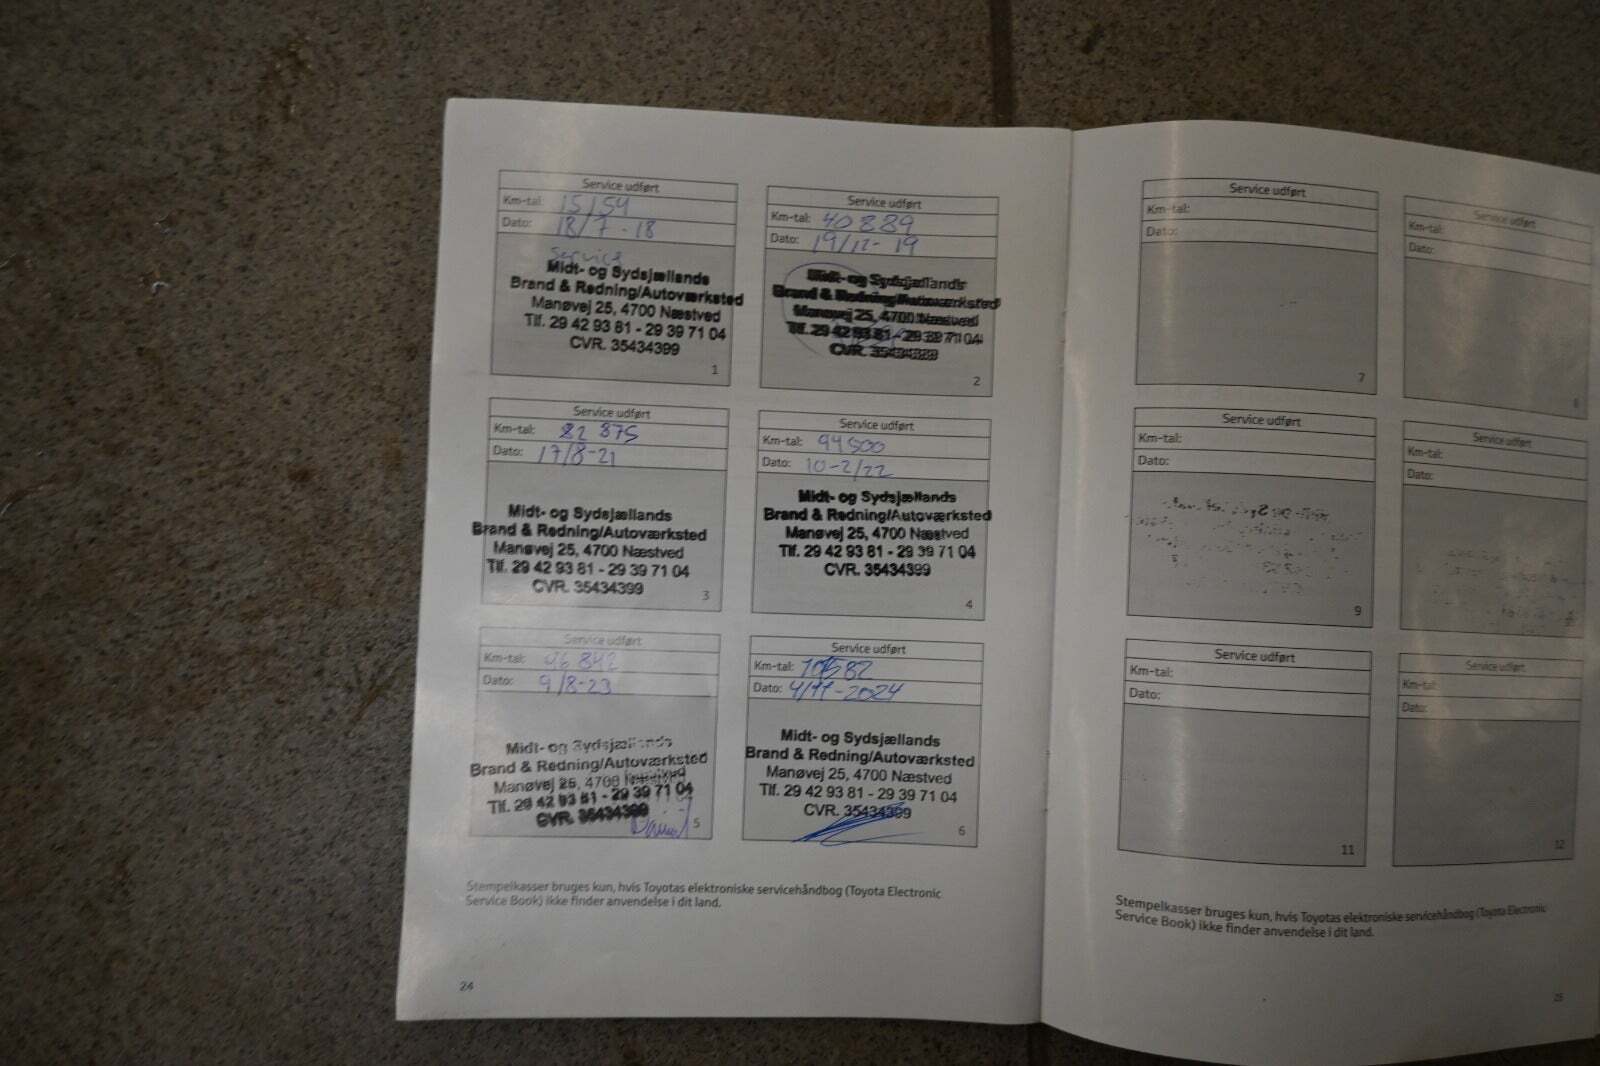 Service udført
Km-tal: 15154
Dato: 18/7-18
Service
Midt- og Sydsjællands
Brand & Redning/Autoværksted
Manøvej 25, 4700 Næstved
Tlf. 29 42 93 81 - 29 39 71 04
CVR. 35434399
1
Service udført
Km-tal: 40889
Dato: 19/12-19
Midt- og Sydsjællands
Brand & Redning/Autoværksted
Manøvej 25, 4700 Næstved
Tlf. 29 42 93 81 - 29 39 71 04
CVR. 35434399
2
Service udført
Km-tal: 82 875
Dato: 17/8-21
Midt- og Sydsjællands
Brand & Redning/Autoværksted
Manøvej 25, 4700 Næstved
Tlf. 29 42 93 81 - 29 39 71 04
CVR. 35434399
3
Service udført
Km-tal: 94500
Dato: 10-2/22
Midt- og Sydsjællands
Brand & Redning/Autoværksted
Manøvej 25, 4700 Næstved
Tlf. 29 42 93 81 - 29 39 71 04
CVR. 35434399
4
Service udført
Km-tal: 96 842
Dato: 9/8-23
Midt- og Sydsjællands
Brand & Redning/Autoværksted
Manøvej 25, 4700 Næstved
Tlf. 29 42 93 81 - 29 39 71 04
CVR. 35434399
5
Service udført
Km-tal:
Dato: 4/11-2024
Midt- og Sydsjællands
Brand & Redning/Autoværksted
Manøvej 25, 4700 Næstved
Tlf. 29 42 93 81 - 29 39 71 04
CVR. 35434399
6
Stempelkasser bruges kun, hvis Toyotas elektroniske servicehåndbog (Toyota Electronic
Service Book) ikke finder anvendelse i dit land.
24
Service udført
Km-tal:
Dato:
7
Service udført
Km-tal:
Dato:
8
Service udført
Km-tal:
Dato:
9
Service udført
Km-tal:
Dato:
Service udført
Km-tal:
Dato:
11
Service udført
Km-tal:
Dato:
12
Stempelkasser bruges kun, hvis Toyotas elektroniske servicehåndbog (Toyota Electronic
Service Book) ikke finder anvendelse i dit land.
25